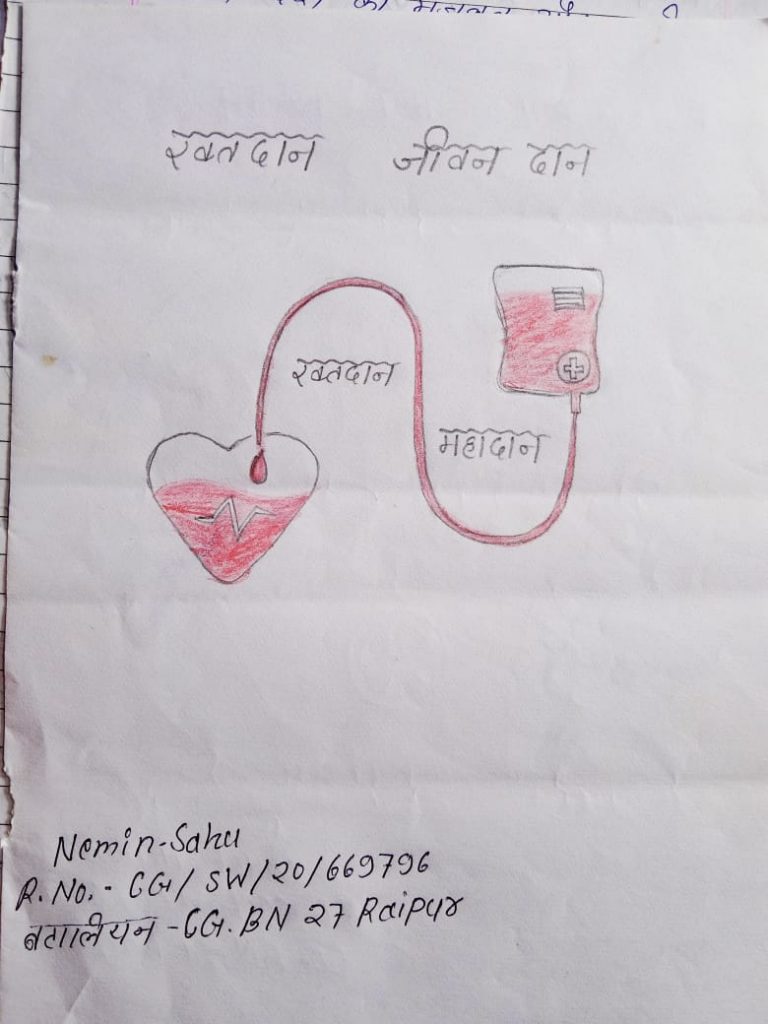 रक्तदान जीवन दान
रक्तदान
महादान
Nemin-Sahu
R. No. - CG/SW/20/669796
बटालियन - CG. BN 27 Raipur